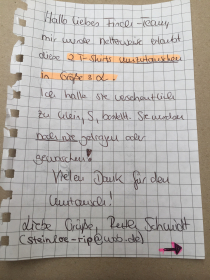 Hallo liebes Finch-Team,
mir wurde netterweise erlaubt
diese 2 T-Shirts umzutauschen
in Größe 3XL.
Ich hatte sie versehentlich
zu klein, S, bestellt. Sie wurden
noch nie getragen oder
gewaschen!
Vielen Dank für den
Umtausch!
Liebe Grüße, Schmidt